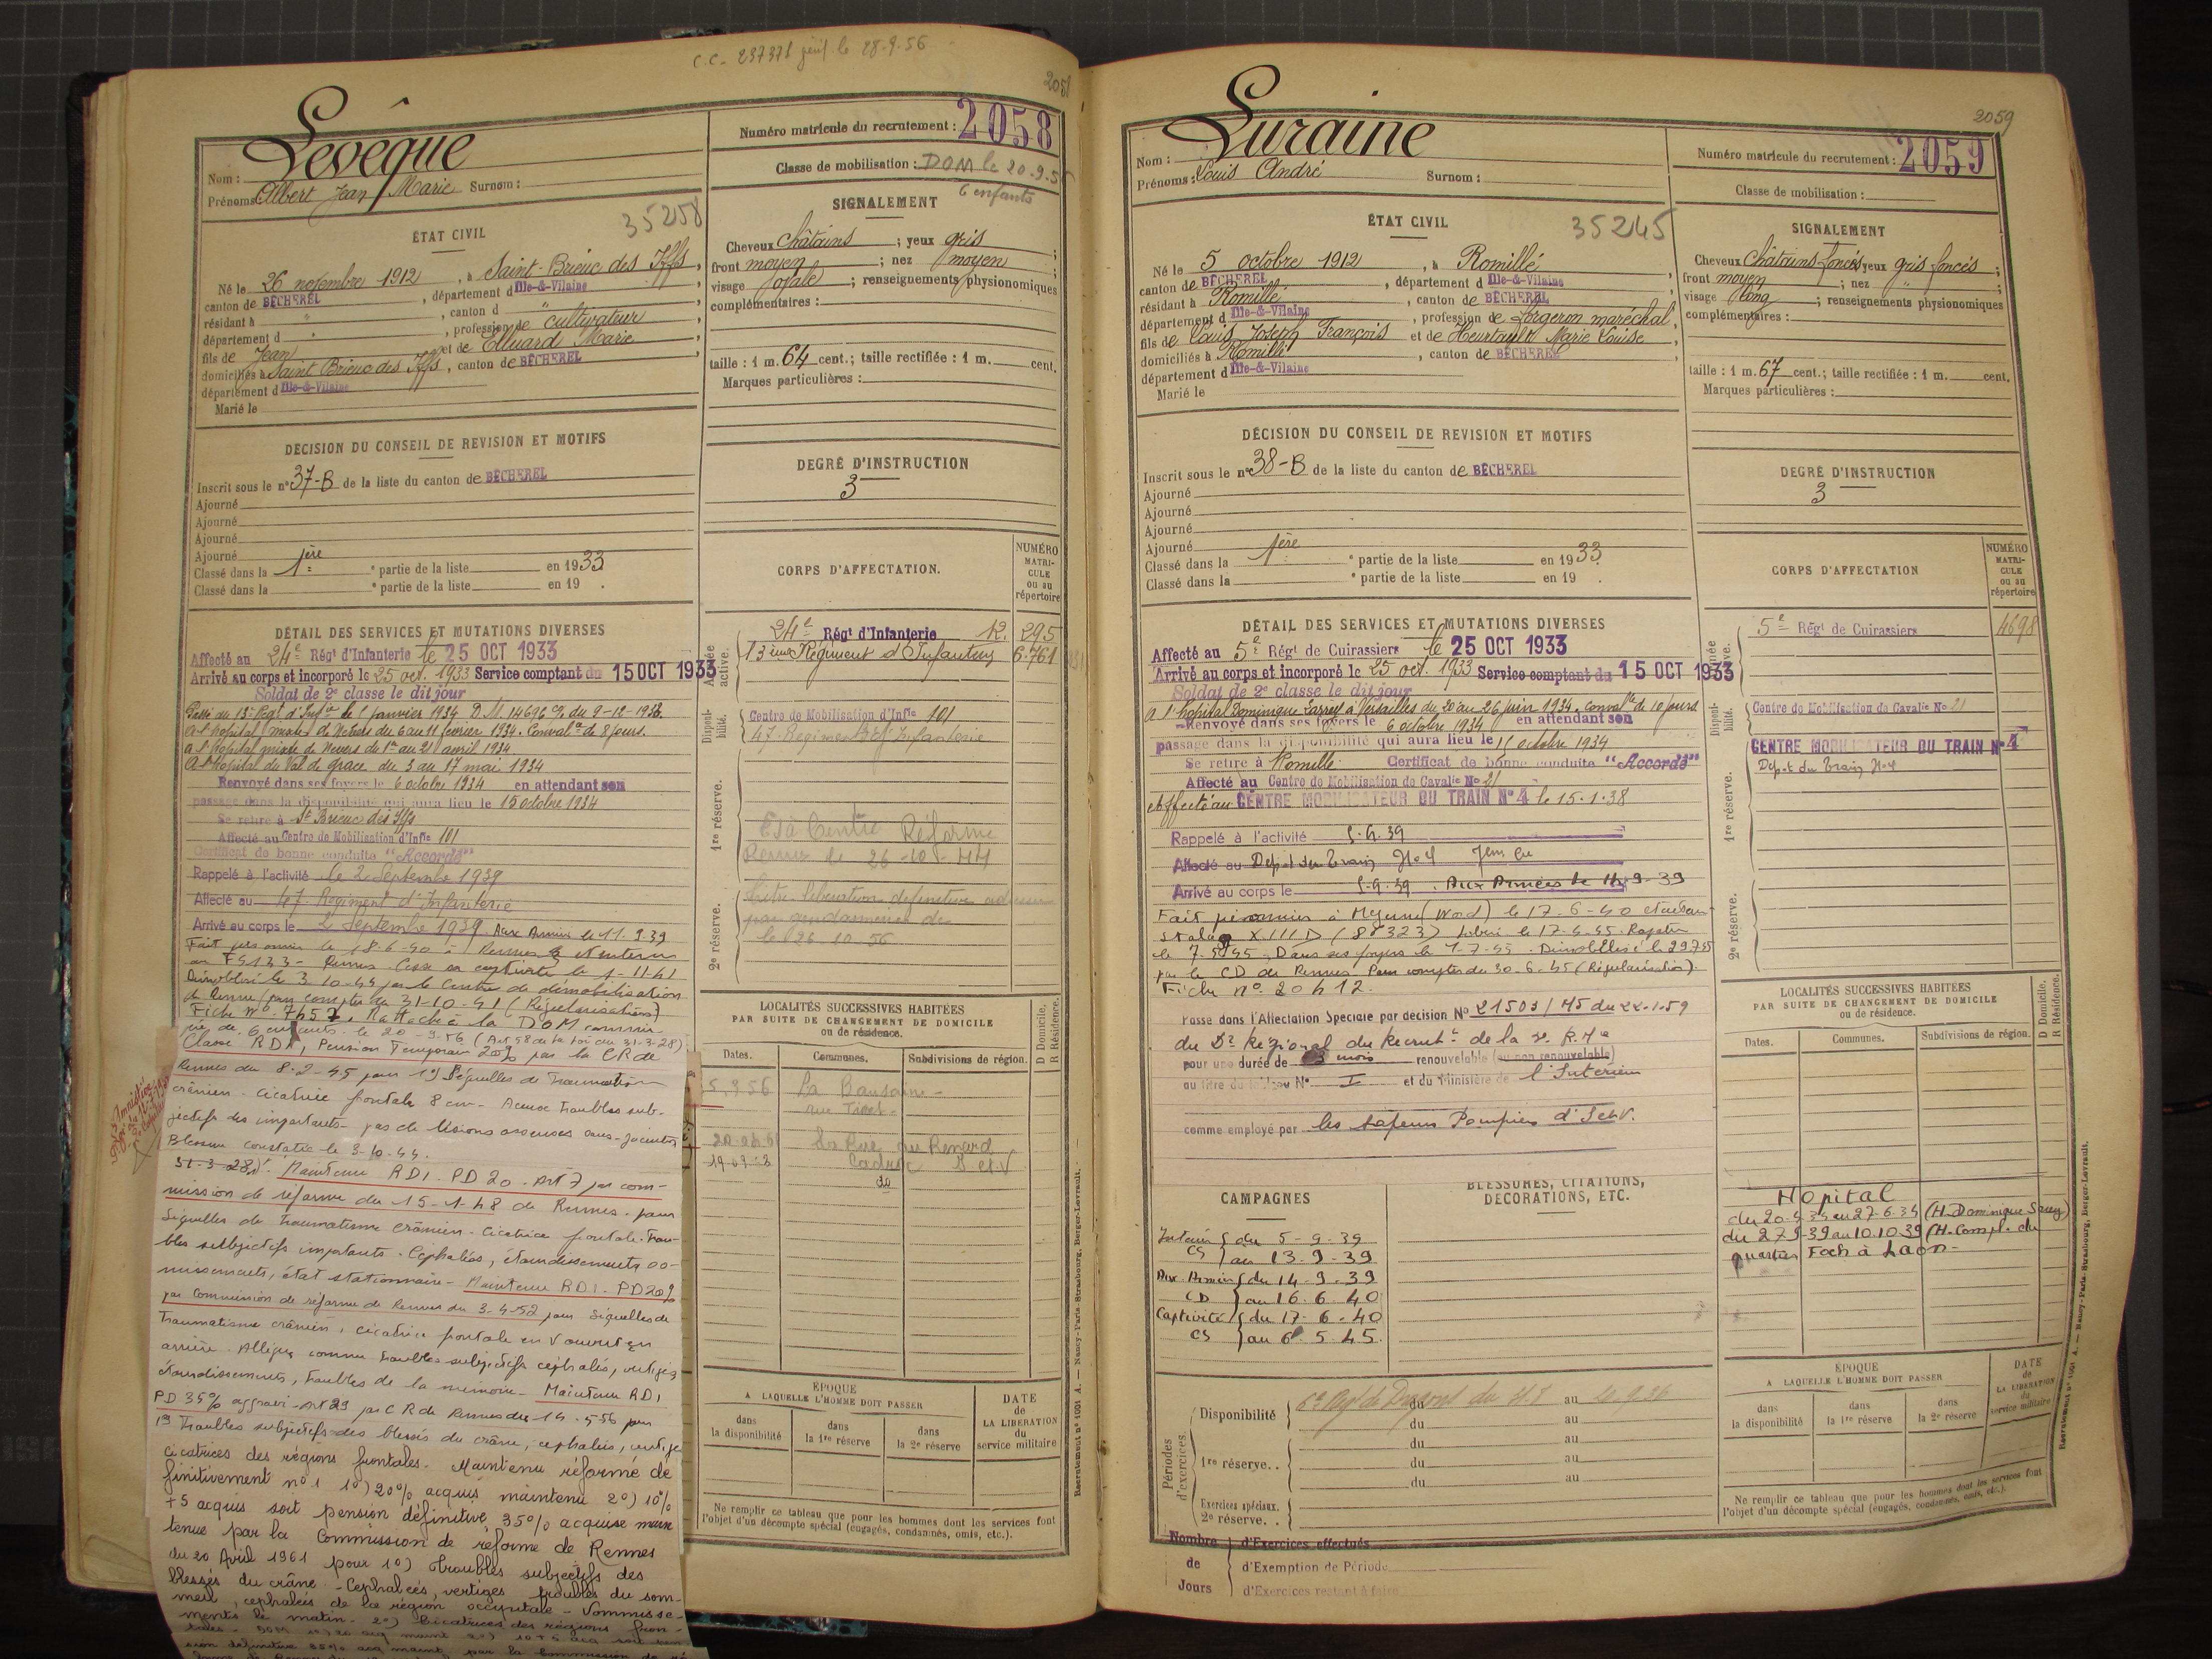 C.C. 237371 le 28.9.56
2058
Nom : Levêque
Prénoms : Albert Jean Marie Surnom :
Numéro matricule du recrutement : 2058
Classe de mobilisation : DOM le 20.9.5
6 enfants
35258
ÉTAT CIVIL
Né le 26 novembre 1912, à Saint-Brieuc des Iffs,
canton de BÉCHEREL, département d'Ille-&-Vilaine
résidant à " , canton d "
département d " , profession de cultivateur
fils de Jean et de Elluard Marie
domiciliés à Saint Brieuc des Iffs, canton de BÉCHEREL
département d'Ille-&-Vilaine
Marié le
SIGNALEMENT
Cheveux châtains ; yeux gris ;
front moyen ; nez moyen ;
visage ovale ; renseignements physionomiques
complémentaires :
taille : 1 m. 64 cent.; taille rectifiée : 1 m. cent.
Marques particulières :
DÉCISION DU CONSEIL DE REVISION ET MOTIFS
Inscrit sous le n° 37-B de la liste du canton de BÉCHEREL
Ajourné
Ajourné
Ajourné
Ajourné
Classé dans la 1ère partie de la liste en 1933
Classé dans la partie de la liste en 19 .
DEGRÉ D'INSTRUCTION
3
CORPS D'AFFECTATION.
NUMÉRO MATRI-CULE ou au répertoire
Armée active.
24e Régt d'Infanterie 12. 295
13ème Régiment d'Infanterie 6.761
Disponibilité.
Centre de Mobilisation d'Infie 101
47 Régiment d'Infanterie
1re réserve.
Centre Réforme
Rennes le 26-10-44
2e réserve.
libération définitive
par gendarmerie de
le 26 10 56
DÉTAIL DES SERVICES ET MUTATIONS DIVERSES
Affecté au 24e Régt d'Infanterie le 25 OCT 1933
Arrivé au corps et incorporé le 25 oct. 1933 Service comptant du 15 OCT 1933
Soldat de 2e classe le dit jour
Passé au 13e Régt d'Infie le 1 janvier 1934 D.M. 14696 du 9-12-1933.
A l'hôpital mixte de Nevers du 6 au 11 février 1934. Convalce de 8 jours.
A l'hôpital mixte de Nevers du 1er au 21 avril 1934
A l'hôpital du Val de grace du 3 au 17 mai 1934
Renvoyé dans ses foyers le 6 octobre 1934 en attendant son
passage dans la disponibilité qui aura lieu le 15 octobre 1934
Se retire à St Brieuc des Iffs
Affecté au Centre de Mobilisation d'Infie 101
Certificat de bonne conduite "Accordé"
Rappelé à l'activité le 2 Septembre 1939
Affecté au 47 Régiment d'Infanterie
Arrivé au corps le 2 Septembre 1939. Aux Armées le 11.9.39
Fait prisonnier le 18.6.40 à Rennes et interné
au FS133 - Rennes. Cesse sa captivité le 1-11-41
Démobilisé le 3-10-44 par le Centre de démobilisation
de Rennes (pour compter du 31-10-41 (Régularisation)
Fiche N° 7657, Rattaché à la DOM comme
père de 6 enfants le 20-9-56 (Art 58 de la loi du 31-3-28)
Classé RD1, Pension Temporaire 20% par la CR de
Rennes du 8-2-45 pour 1°) Séquelles de Traumatisme
crânien - cicatrice frontale 8 cm - Accuse troubles sub-
jectifs des importants - pas de lésions osseuses sous-jacentes
Blessure constatée le 3-10-44.
31-3-28). Maintenu RD1. PD 20. Art 7 par com-
mission de réforme du 15-1-48 de Rennes - pour
Séquelles de traumatisme crânien. Cicatrice frontale. Trou-
bles subjectifs importants. Céphalées, étourdissements
état stationnaire - Maintenu RD1. PD 20%
par Commission de réforme de Rennes du 3-4-52 pour Séquelles de
Traumatisme crânien, cicatrice frontale en V ouvert en
arrière. Allègue comme troubles subjectifs céphalées, vertiges,
étourdissements, troubles de la mémoire - Maintenu RD1
PD 35% aggravé - Art 29 par C R de Rennes du 14.5.56 pour
1°) Troubles subjectifs des blessés du crâne, céphalées, vertige
cicatrices des régions frontales. Maintenu réformé dé
finitivement n° 1 1°) 20% acquis maintenu 2°) 10%
+5 acquis soit pension définitive 35% acquise main
tenue par la Commission de réforme de Rennes
du 20 Avril 1961 pour 1°) Troubles subjectifs des
blessés du crâne - Céphalées, vertiges, troubles du som-
meil, céphalées de la région occipitale - Vomisse-
ments le matin - 2°) Cicatrices des régions fron-
LOCALITÉS SUCCESSIVES HABITÉES
PAR SUITE DE CHANGEMENT DE DOMICILE
ou de résidence.
D Domicile, R Résidence.
Dates. Communes. Subdivisions de région.
5.9.56 La Baussaine -
19.09.68
ÉPOQUE
A LAQUELLE L'HOMME DOIT PASSER
dans la disponibilité
dans la 1re réserve
dans la 2e réserve
DATE de LA LIBÉRATION du service militaire
Ne remplir ce tableau que pour les hommes dont les services font
l'objet d'un décompte spécial (engagés, condamnés, omis, etc.).
Recrutement n° 1001 A. — Nancy-Paris-Strasbourg, Berger-Levrault.
2059
Nom : Luraine
Prénoms : Louis André Surnom :
Numéro matricule du recrutement : 2059
Classe de mobilisation :
35245
ÉTAT CIVIL
Né le 5 octobre 1912, à Romillé
canton de BÉCHEREL, département d'Ille-&-Vilaine
résidant à Romillé, canton de BÉCHEREL
département d'Ille-&-Vilaine, profession de forgeron maréchal,
fils de Louis Joseph François et de Heurtault Marie Louise
domiciliés à Romillé, canton de BÉCHEREL
département d'Ille-&-Vilaine
Marié le
SIGNALEMENT
Cheveux Châtains foncés yeux gris foncés ;
front moyen ; nez " ;
visage long ; renseignements physionomiques
complémentaires :
taille : 1 m. 67 cent.; taille rectifiée : 1 m. cent.
Marques particulières :
DÉCISION DU CONSEIL DE REVISION ET MOTIFS
Inscrit sous le n° 38-B de la liste du canton de BÉCHEREL
Ajourné
Ajourné
Ajourné
Ajourné
Classé dans la 1ère partie de la liste en 1933
Classé dans la partie de la liste en 19 .
DEGRÉ D'INSTRUCTION
3
CORPS D'AFFECTATION
NUMÉRO MATRI-CULE ou au répertoire
5e Régt de Cuirassiers 4698
Disponibilité.
Centre de Mobilisation de Cavalie No 21
CENTRE MOBILISATEUR DU TRAIN N° 4
Dépôt du Train N°4
1re réserve.
2e réserve.
DÉTAIL DES SERVICES ET MUTATIONS DIVERSES
Affecté au 5e Régt de Cuirassiers le 25 OCT 1933
Arrivé au corps et incorporé le 25 oct. 1933 Service comptant du 15 OCT 1933
Soldat de 2e classe le dit jour
A l'hôpital Dominique Larrey à Versailles du 20 au 26 juin 1934. Convalce de 10 jours
Renvoyé dans ses foyers le 6 octobre 1934 en attendant son
passage dans la disponibilité qui aura lieu le 15 octobre 1934
Se retire à Romillé. Certificat de bonne conduite "Accordé"
Affecté au Centre de Mobilisation de Cavalie No 21
Affecté au CENTRE MOBILISATEUR DU TRAIN N° 4 le 15.1.38
Rappelé à l'activité 5.9.39
Affecté au Dépôt du Train N°4
Arrivé au corps le 5.9.39. Aux Armées le 14-9-39
Fait prisonnier à (Nord) le 17-6-40
Stalag XIII D (88323) Libéré le 17-4-45. Rapatrié
le 7.5.45. Dans ses foyers le 1-7-45. Démobilisé le 29.7.45
par le CD de Rennes. Pour compter du 30-6-45 (Régularisation).
Fiche n° 20412.
Passé dans l'Affectation Spéciale par décision No 21503/45 du 22-1-59
du Dr Régional du Recrutt de la 3e R.Mre
pour une durée de mois renouvelable (ou non renouvelable)
au titre du tableau N° I et du Ministère de l'Intérieur
comme employé par les Sapeurs Pompiers d'I et V.
CAMPAGNES
Intérieur CS { du 5-9-39 au 13-9-39
Aux Armées CD { du 14-9-39 au 16.6.40
Captivité CS { du 17-6-40 au 6.5.45
BLESSURES, CITATIONS, DÉCORATIONS, ETC.
LOCALITÉS SUCCESSIVES HABITÉES
PAR SUITE DE CHANGEMENT DE DOMICILE
ou de résidence.
D Domicile, R Résidence.
Dates. Communes. Subdivisions de région.
Hôpital
du 20-6-34 au 27.6.34 (H. Dominique Larrey)
du 27.9-39 au 10.10.39 (H. Compl. du
quartier Foch à Laon -
Périodes d'exercices.
Disponibilité du au
du au
1re réserve. . du au
du au
du au
Exercices spéciaux.
2e réserve. .
Nombre de Jours
d'Exercices effectués
d'Exemption de Période
d'Exercices restant à faire
ÉPOQUE
A LAQUELLE L'HOMME DOIT PASSER
dans la disponibilité
dans la 1re réserve
dans la 2e réserve
DATE de LA LIBÉRATION du service militaire
Ne remplir ce tableau que pour les hommes dont les services font
l'objet d'un décompte spécial (engagés, condamnés, omis, etc.).
Recrutement n° 1001 A. — Nancy-Paris-Strasbourg, Berger-Levrault.